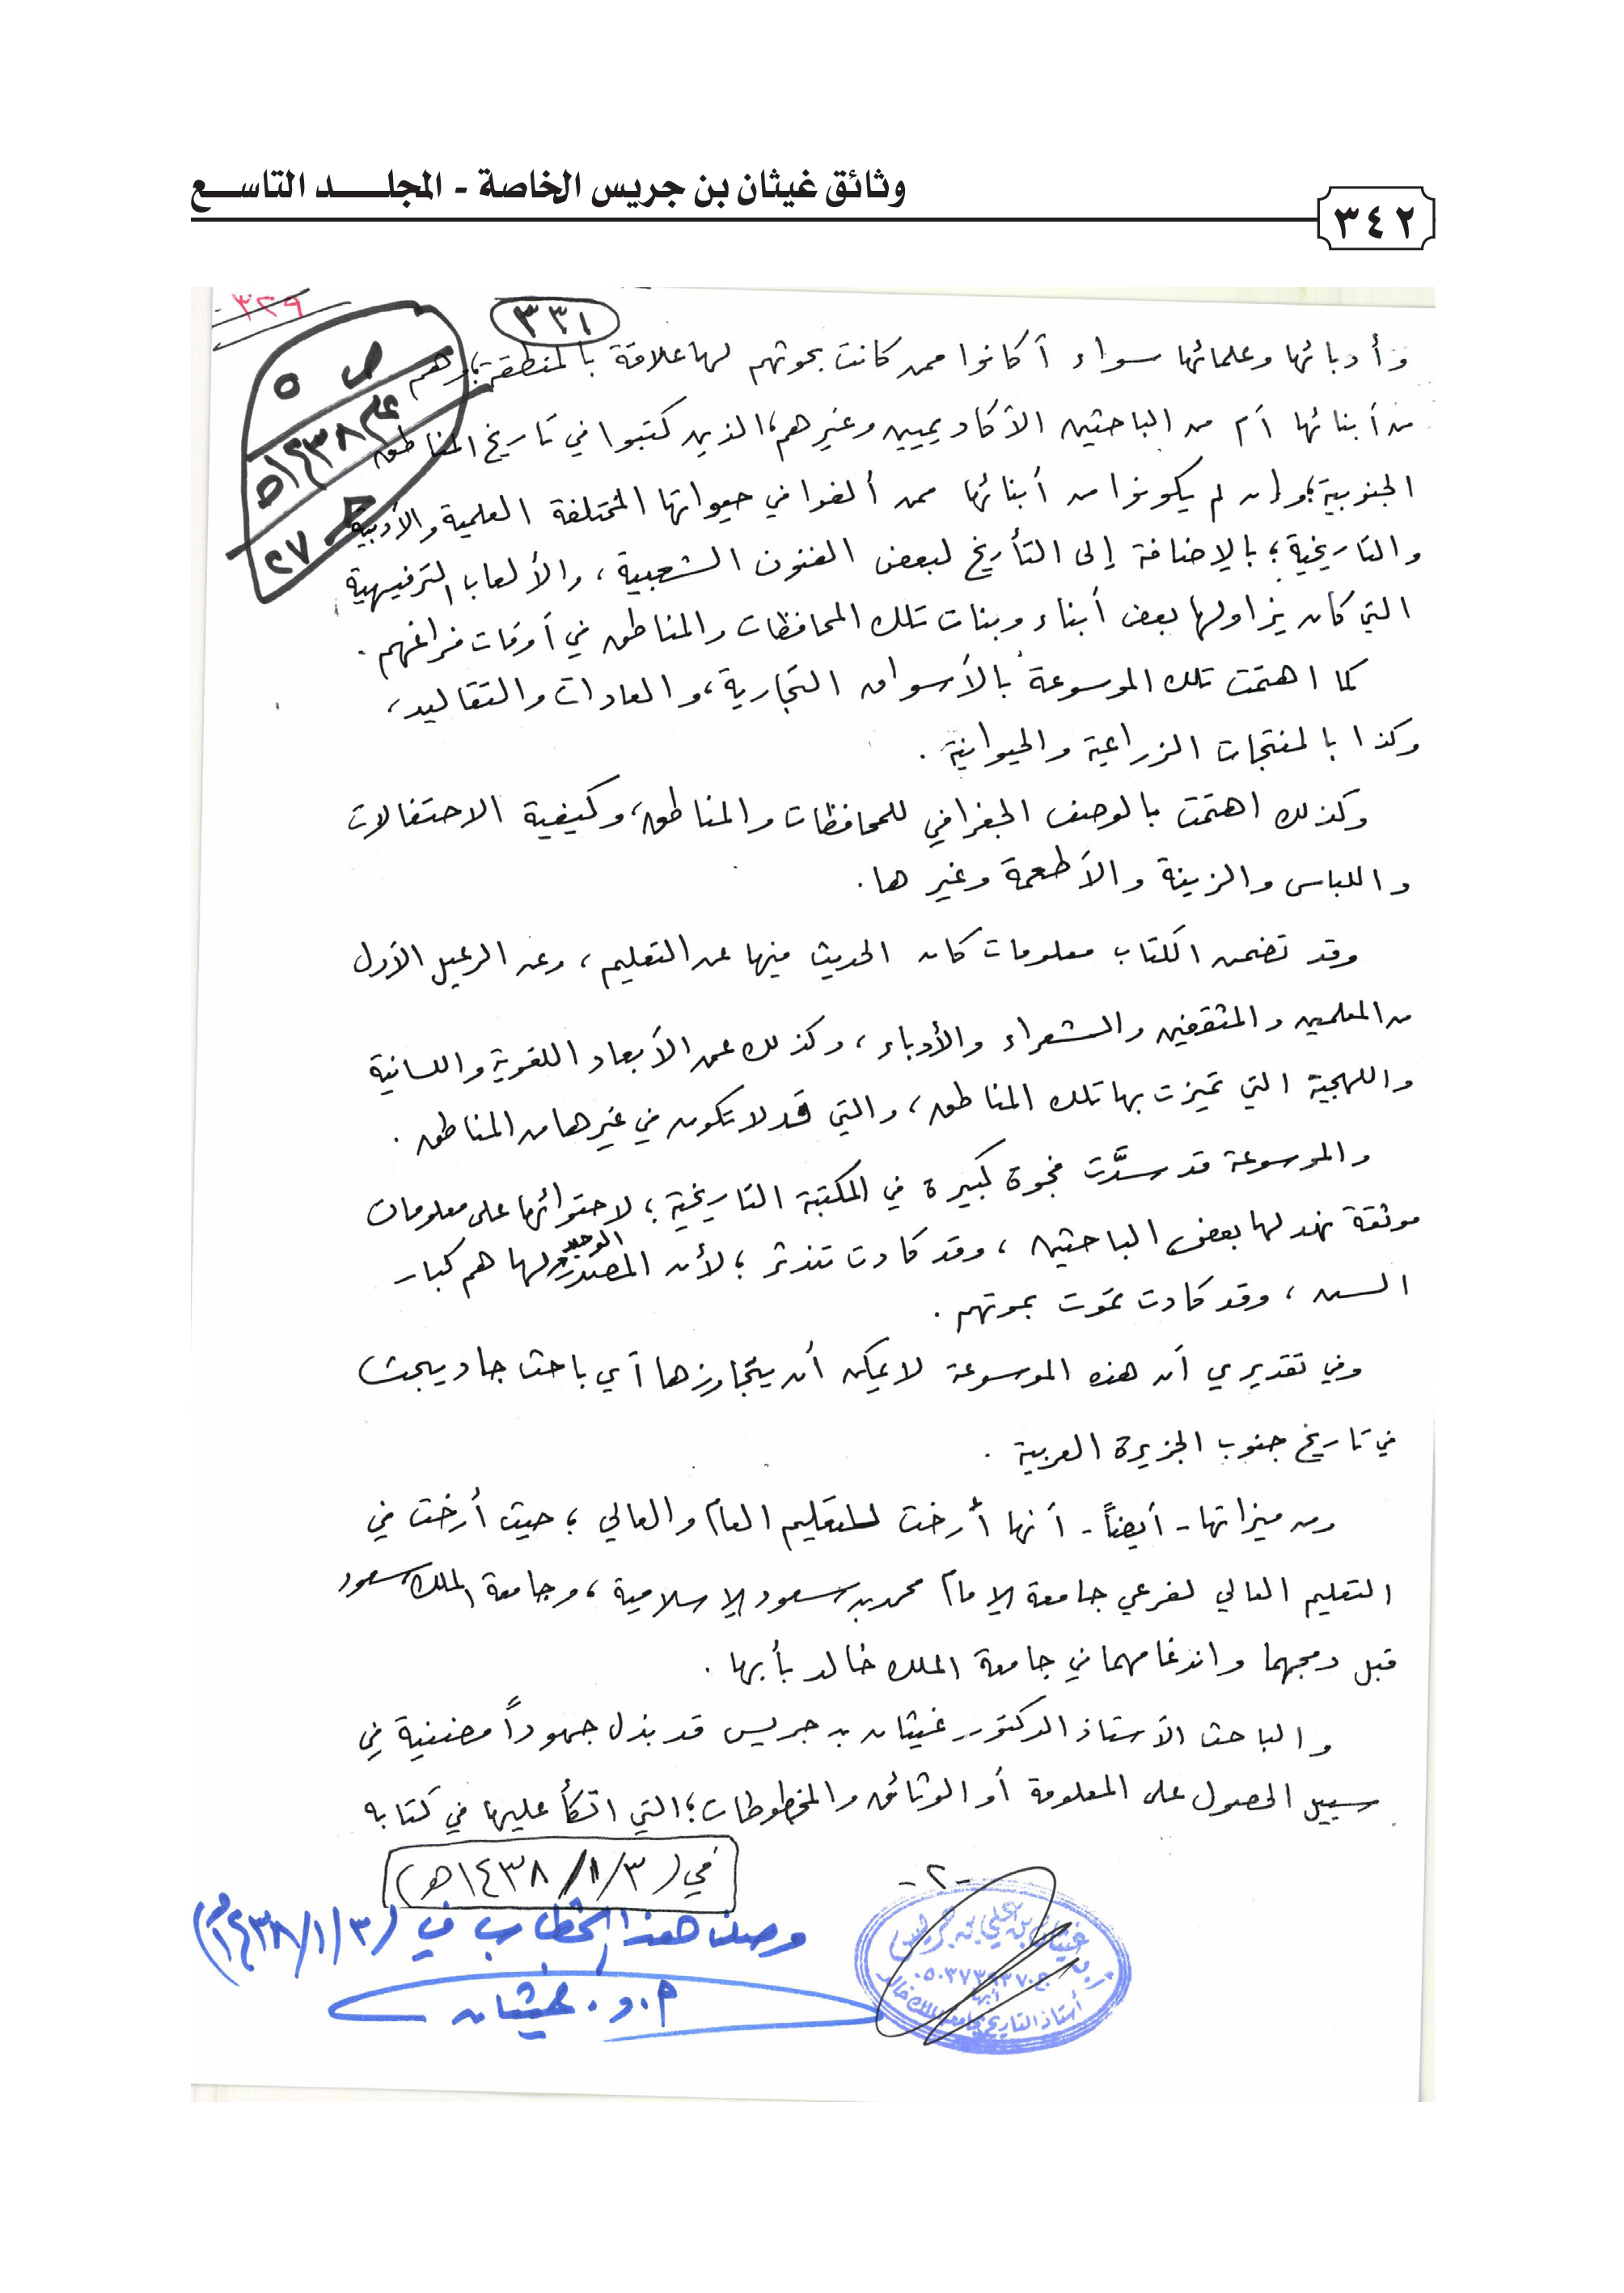 وثائق غيثان بن جريس الخاصة - المجلـــــد التاســـع
٣٤٢
٣٢٩
٣٣١
ص ٥
عام ١٤٣٨هـ
حـ ٢٧
وأدبائها وعلمائها سواء أكانوا ممن كانت بحوثهم لها علاقة بالمنطقة؛ وهم
من أبنائها أم من الباحثين الأكاديميين وغيرهم، الذين كتبوا في تاريخ المناطق
الجنوبية؛ وإن لم يكونوا من أبنائها ممن ألفوا في حيواتها المختلفة العلمية والأدبية
والتاريخية؛ بالإضافة إلى التأريخ لبعض الفنون الشعبية، والألعاب الترفيهية
التي كان يزاولها بعض أبناء وبنات تلك المحافظات والمناطق في أوقات فراغهم.
كما اهتمت تلك الموسوعة بالأسواق التجارية، والعادات والتقاليد،
وكذا بالمنتجات الزراعية والحيوانية.
وكذلك اهتمت بالوصف الجغرافي للمحافظات والمناطق، وكيفية الاحتفالات
واللباس والزينة والأطعمة وغيرها.
وقد تضمن الكتاب معلومات كان الحديث فيها عن التعليم، وعن الرعيل الأول
من المعلمين والمثقفين والشعراء والأدباء، وكذلك عن الأبعاد اللغوية واللسانية
واللهجية التي تميزت بها تلك المناطق، والتي قد لا تكون في غيرها من المناطق.
والموسوعة قد سدَّت فجوة كبيرة في المكتبة التاريخية؛ لاحتوائها على معلومات
موثقة نهد لها بعض الباحثين، وقد كادت تندثر؛ لأن المصدر الوحيد لها هم كبار
السن، وقد كادت تموت بموتهم.
وفي تقديري أن هذه الموسوعة لا يمكن أن يتجاوزها أي باحث جاد يبحث
في تاريخ جنوب الجزيرة العربية.
ومن ميزاتها - أيضاً - أنها أرخت للتعليم العام والعالي؛ حيث أرخت في
التعليم العالي لفرعي جامعة الإمام محمد بن سعود الإسلامية، وجامعة الملك سعود
قبل دمجهما واندغامهما في جامعة الملك خالد بأبها.
والباحث الأستاذ الدكتور غيثان بن جريس قد بذل جهوداً مضنية في
سبيل الحصول على المعلومة أو الوثائق والمخطوطات؛ التي اتكأ عليها في كتابه
-٢-
في (١٤٣٨/١/٣هـ)
وصلنا هذا الخطاب في (١٤٣٨/١/٣هـ)
أ.د. غيثان
أ.د. غيثان بن علي بن جريس
أبها
أستاذ التاريخ بجامعة الملك خالد